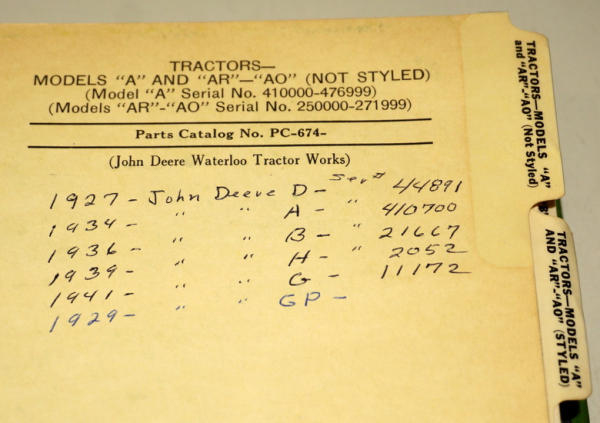 TRACTORS—
MODELS "A" AND "AR"—"AO" (NOT STYLED)
(Model "A" Serial No. 410000-476999)
(Models "AR"-"AO" Serial No. 250000-271999)
Parts Catalog No. PC-674-
(John Deere Waterloo Tractor Works)
1927 - John Deere D - Ser# 44891
1934 - " " A - " 410700
1936 - " " B - " 21667
1939 - " " H - " 2052
1941 - " " G - 11172
1929 - " " GP -
TRACTORS—MODELS "A"
and "AR"-"AO" (Not Styled)
TRACTORS—MODELS "A"
AND "AR"-"AO" (STYLED)